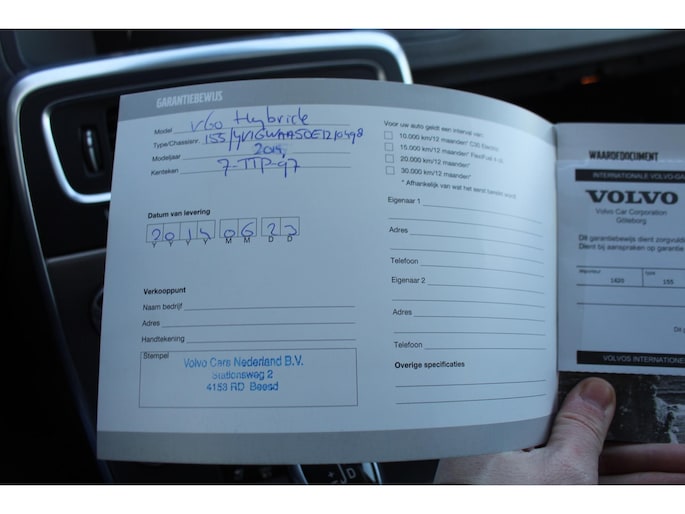 GARANTIEBEWIJS
Model V60 Hybride
Type/Chassisnr. 155/YV1GWAA5DE1210498
Modeljaar 2014
Kenteken 7-TTP-97
Datum van levering
2014 06 23
Y Y Y Y M M D D
Verkooppunt
Naam bedrijf
Adres
Handtekening
Stempel
Volvo Cars Nederland B.V.
Stationsweg 2
4153 RD Beesd
Voor uw auto geldt een interval van:
10.000 km/12 maanden* C30 Electric
15.000 km/12 maanden*
20.000 km/12 maanden*
30.000 km/12 maanden*
* Afhankelijk van wat het eerst bereikt wordt
Eigenaar 1
Adres
Telefoon
Eigenaar 2
Adres
Telefoon
Overige specificaties
WAARDEDOCUMENT
INTERNATIONALE VOLVO-GA
VOLVO
Volvo Car Corporation
Göteborg
Dit garantiebewijs dient zorgvuldi
Dient bij aanspraken op garantie
Importeur Type
1420 155
VOLVOS INTERNATIONE
D